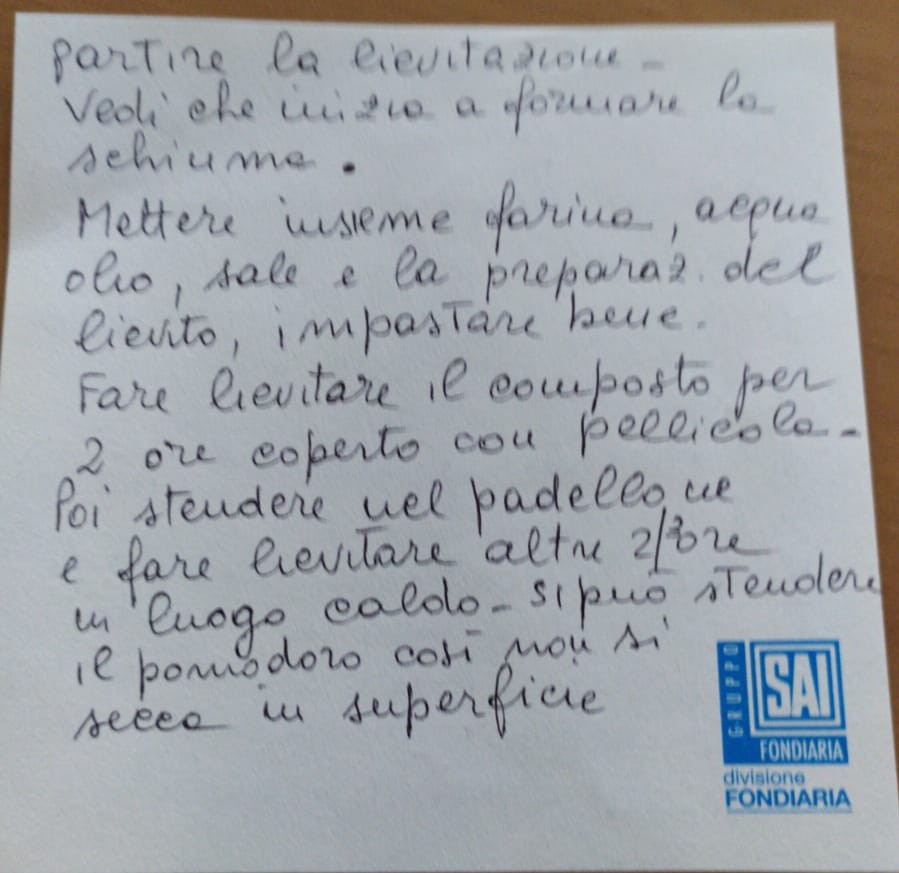 partire la lievitazione -
Vedi che inizia a formare la
schiuma.
Mettere insieme farina, acqua
olio, sale e la preparaz. del
lievito, impastare bene.
Fare lievitare il composto per
2 ore coperto con pellicola -
Poi stendere nel padellone
e fare lievitare altre 2/3 ore
in luogo caldo - si può stendere
il pomodoro così non si
secca in superficie
GRUPPO
SAI
FONDIARIA
divisione
FONDIARIA